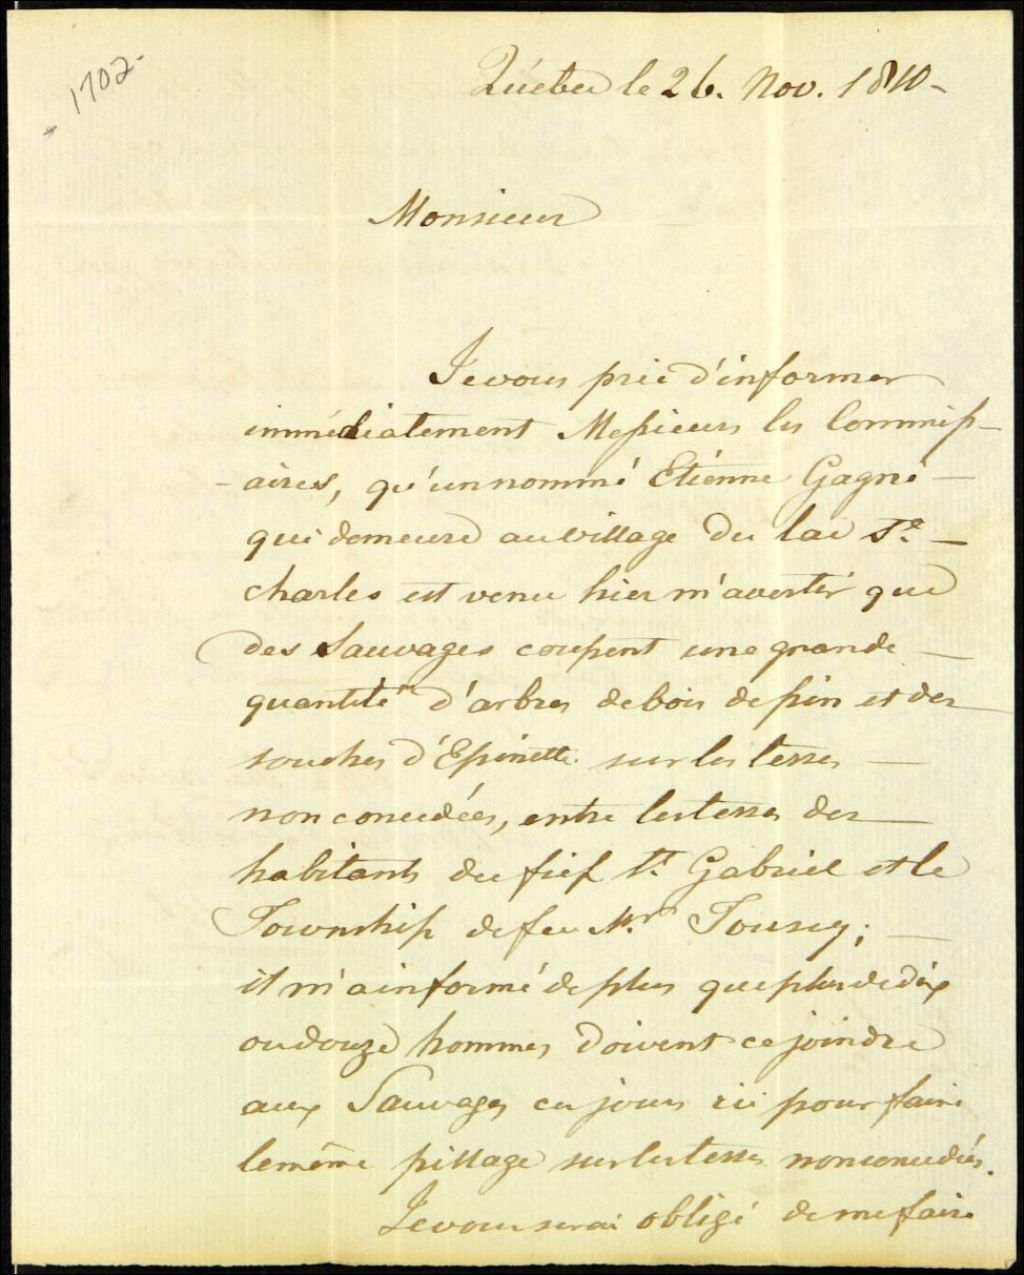 1702-
Québec le 26. Nov. 1810-
Monsieur
Je vous prie d'informer
immédiatement Messieurs les Commiss-
-aires, qu'un nommé Etiénne Gagné -
qui demeure au village du lac St. -
charles est venu hier m'avertir que
des Sauvages coupent une grande -
quantité d'arbres de bois de pin et des
souches d'Epinette sur les terres -
non concedées, entre les terres des
habitants du fief St. Gabriel et le
Township de feu Mr. Tousey; -
il m'a informé de plus que plus de dix
ou douze hommes doivent ce joindre
aux Sauvages ces jours ici pour faire
le même pillage sur les terres non concedées.
Je vous serai obligé de me faire